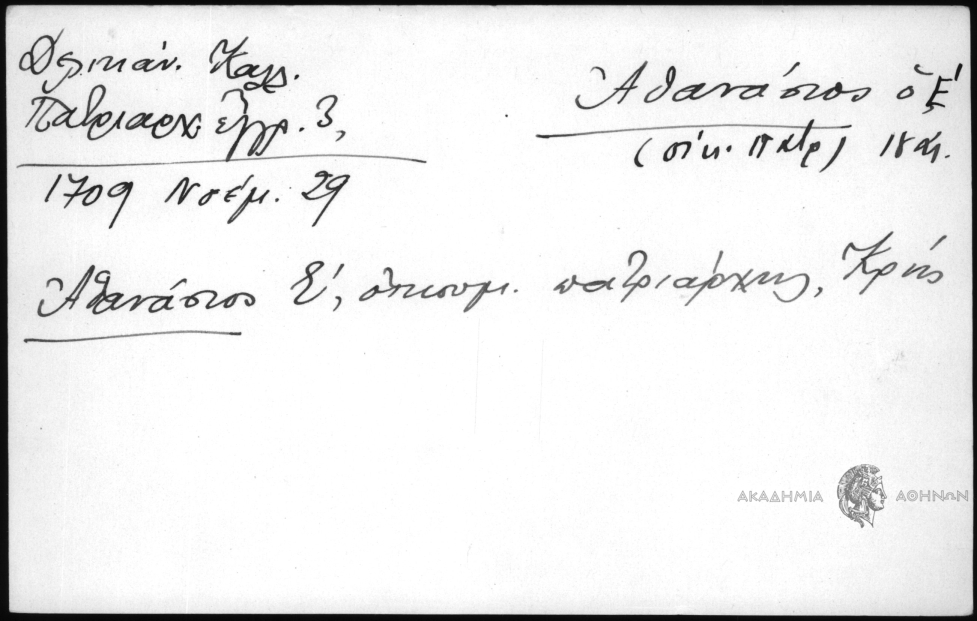 Δελικάν. Καλλ.
Πατριαρχ. ἔγγρ. 3,
1709 Νοέμ. 29
Ἀθανάσιος ὁ Ε΄
(οἰκ. πατρ) 18 αἰ.
Ἀθανάσιος Ε΄, οἰκουμ. πατριάρχης, Κρής
ΑΚΑΔΗΜΙΑ ΑΘΗΝΩΝ